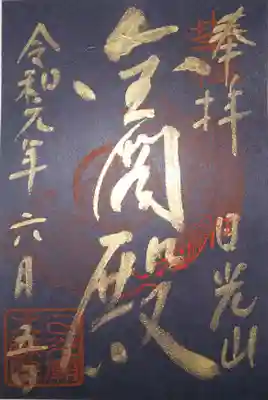 奉拝 日光山
金閣殿
令和元年 六月 五日